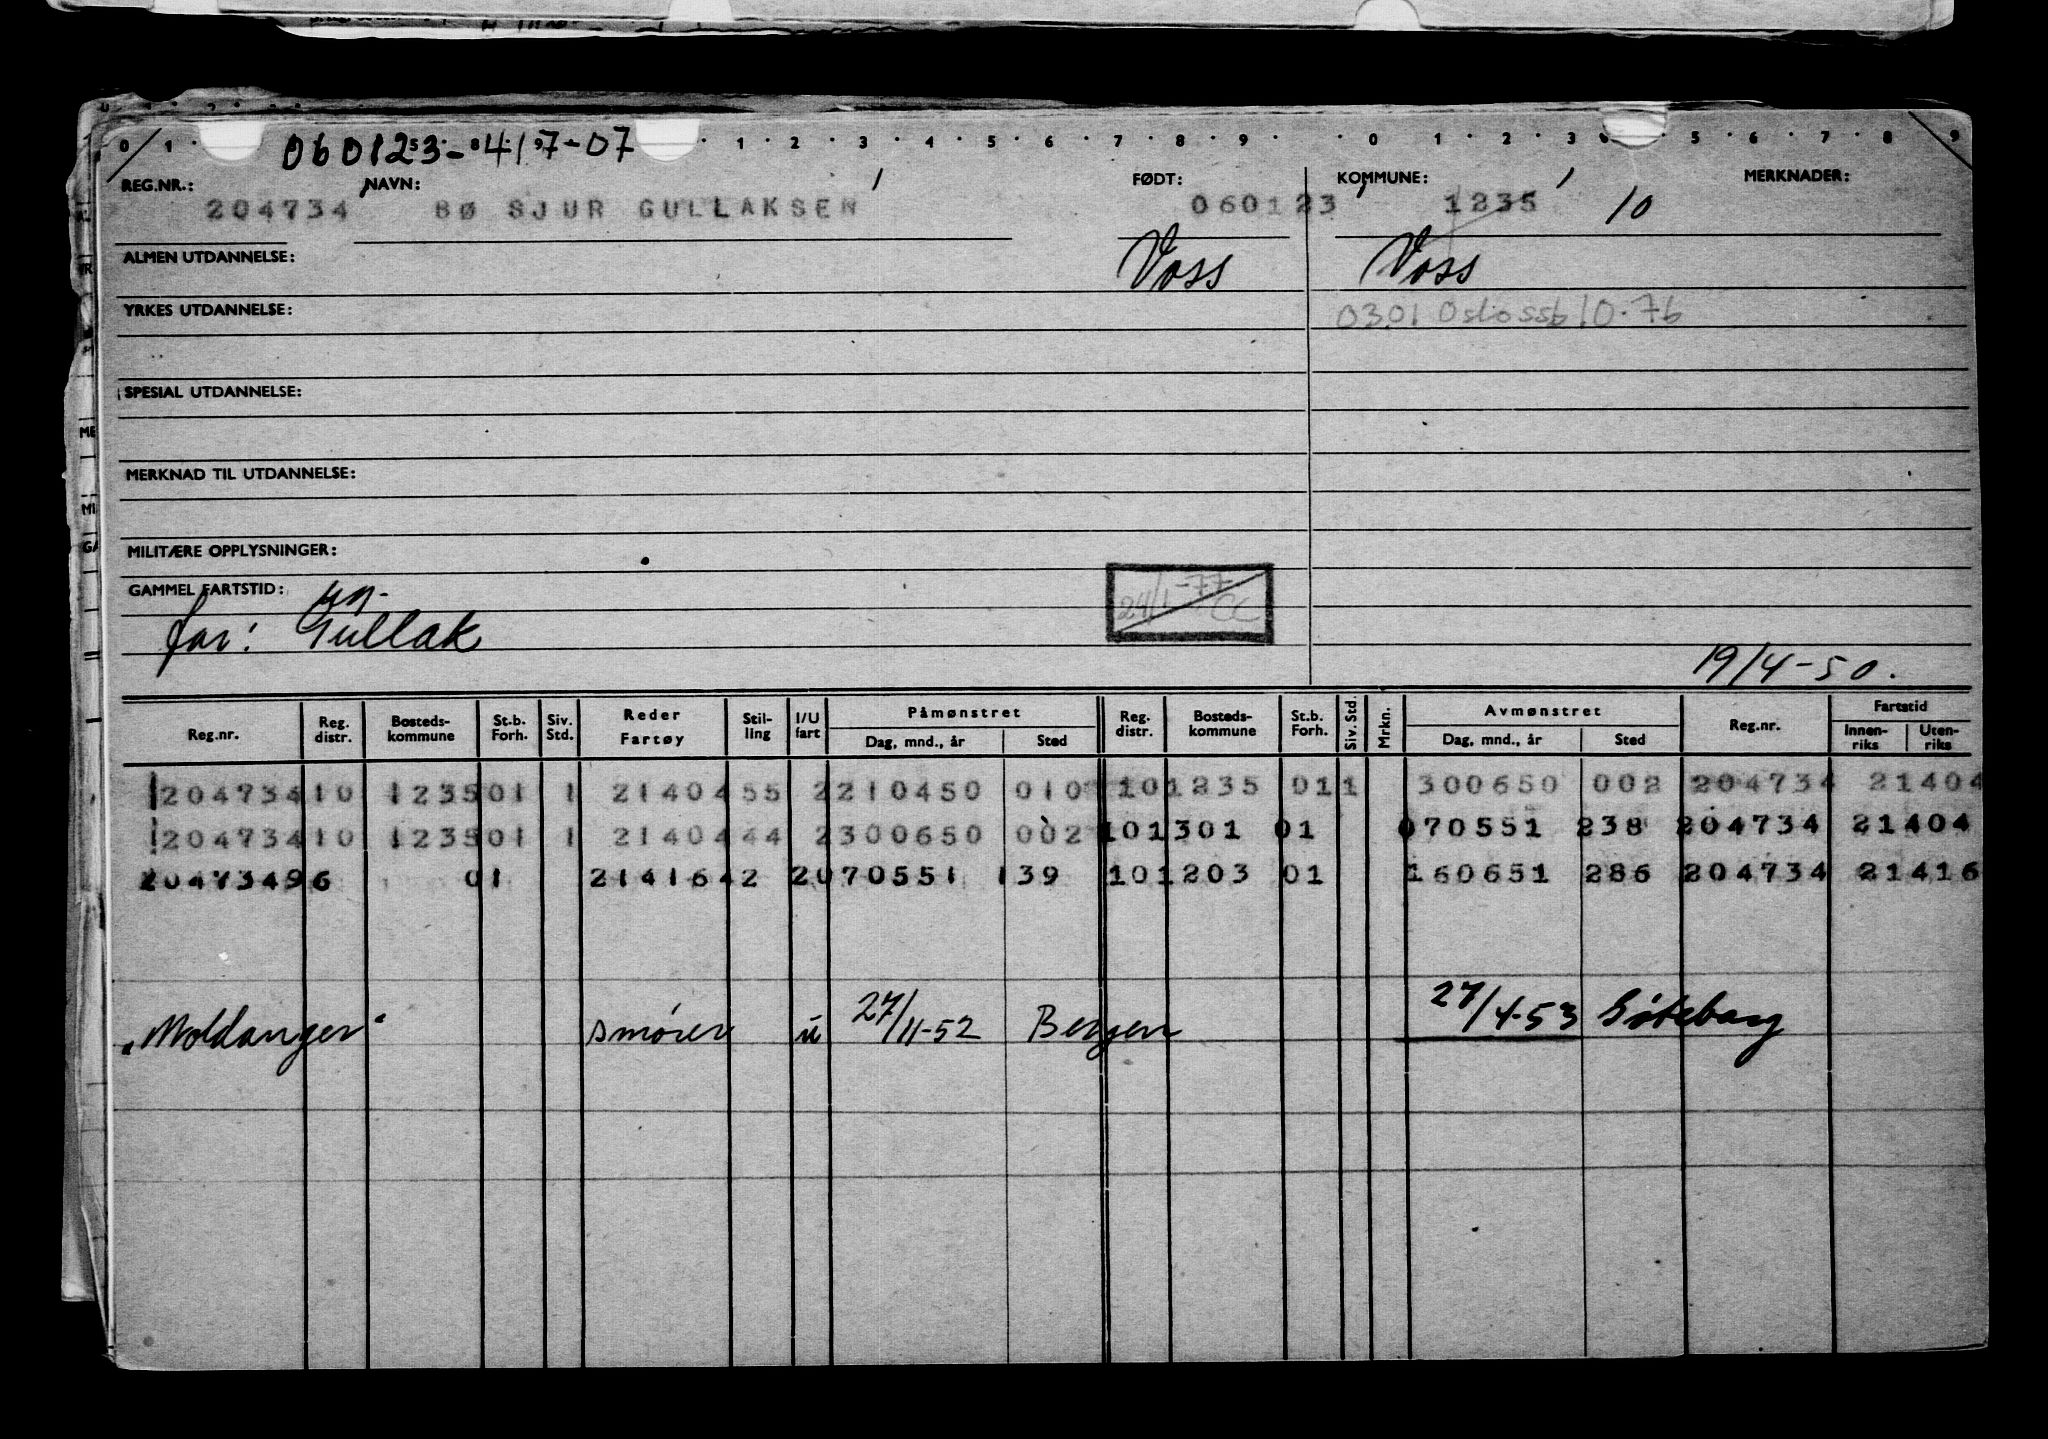 0 1 1 2 3 4 5 6 7 8 9 0 1 2 3 5 6 7 8 9
060123-417-07
REG.NR.: NAVN: FØDT: KOMMUNE: MERKNADER:
204734 BØ SJUR GULLAKSEN 060123 1235 10
ALMEN UTDANNELSE: Voss Voss
YRKES UTDANNELSE: 0301 Oslo ssb 10.76
SPESIAL UTDANNELSE:
MERKNAD TIL UTDANNELSE:
MILITÆRE OPPLYSNINGER:
GAMMEL FARTSTID: 24/1-77 CC
far: Gullak
19/4-50.
Reg.nr. Reg. distr. Bosteds-kommune St.b. Forh. Siv. Std. Reder Fartøy Stil-ling I/U fart Påmønstret Dag, mnd., år Sted Reg. distr. Bosteds-kommune St.b. Forh. Siv. Std. Mrkn. Avmønstret Dag, mnd., år Sted Reg.nr. Fartstid Innen-riks Uten-riks
204734 10 1235 01 1 21404 55 2 210450 010 10 1235 01 1 300650 002 204734 21404
204734 10 1235 01 1 21404 44 2 300650 002 10 1301 01 070551 238 204734 21404
204734 96 01 21416 42 2 070551 139 10 1203 01 160651 286 204734 21416
"Moldanger" smører u 27/11-52 Bergen 27/4-53 Gøteborg